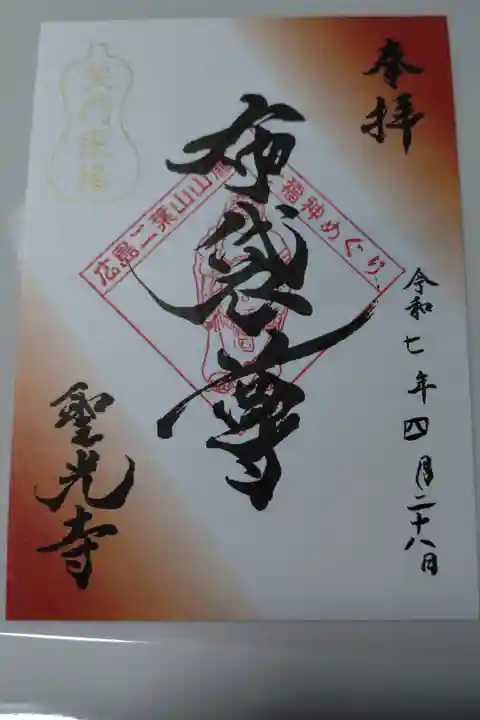 奉拝
布袋尊
広島二葉山山麓
福神めぐり
令和七年四月二十八日
聖光寺
笑門来福